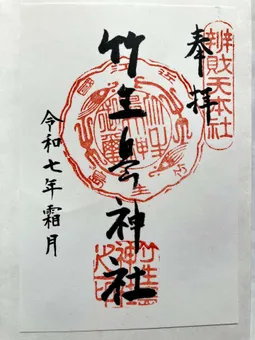 辨財天本社
奉拝
竹生島神社
竹生島
神社
之印
令和七年霜月